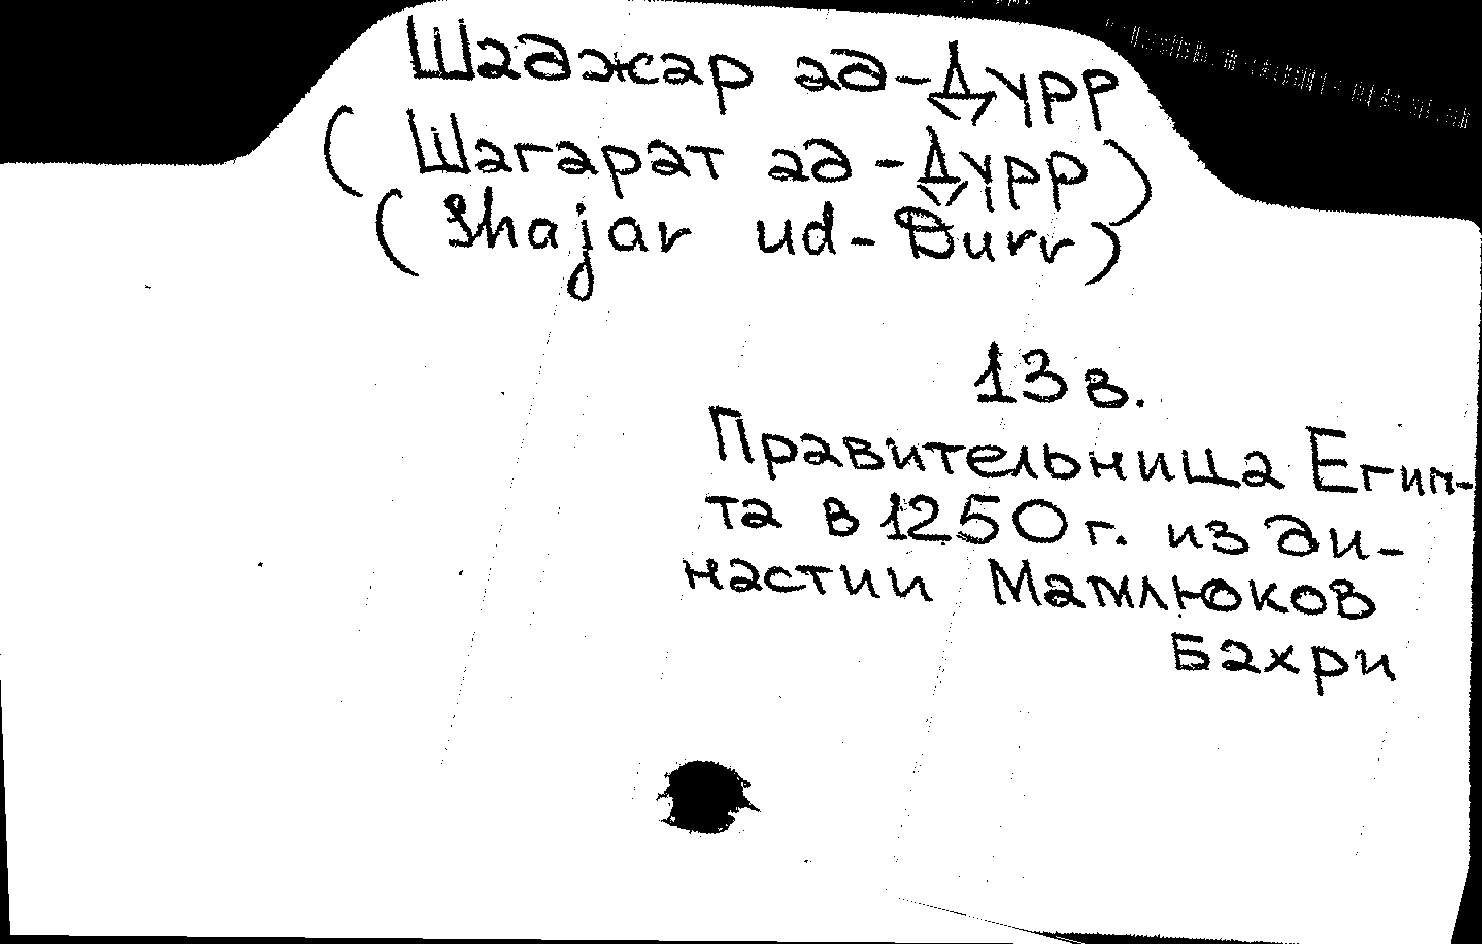 Шаджар ад-Дурр
(Шагарат ад-Дурр)
(Shajar ud-Durr)
13 в.
Правительница Егип-
та в 1250 г. из ди-
настии Мамлюков
Бахри